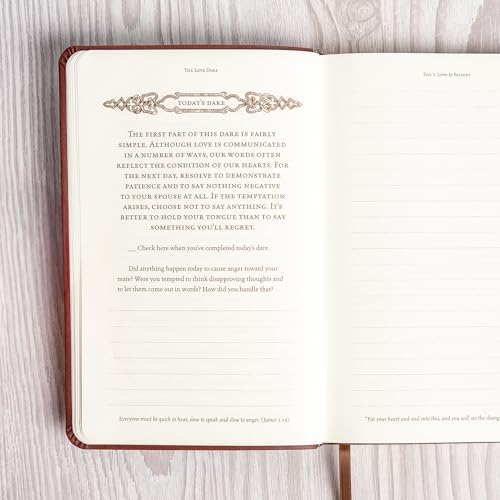 The Love Dare
TODAY'S DARE
The first part of this dare is fairly
simple. Although love is communicated
in a number of ways, our words often
reflect the condition of our hearts. For
the next day, resolve to demonstrate
patience and to say nothing negative
to your spouse at all. If the temptation
arises, choose not to say anything. It's
better to hold your tongue than to say
something you'll regret.
___ Check here when you've completed today's dare.
Did anything happen today to cause anger toward your
mate? Were you tempted to think disapproving thoughts and
to let them come out in words? How did you handle that?
Everyone must be quick to hear, slow to speak and slow to anger. (James 1:19)
Day 1: Love Is Patient
"Put your heart and soul into this, and you will see the chang